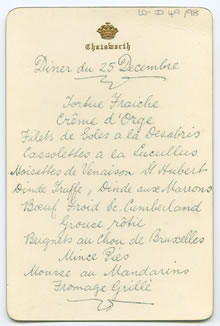 W-D 49/98
Chatsworth
Dîner du 25 Decembre
Tortue Fraiche
Crême d'Orge
Filets de Soles a la Desabris
Cassolettes a la Lucullus
Noisettes de Venaison St Hubert
Dinde Truffe, Dinde aux Marrons
Bœuf Froid Sc. Cumberland
Grouse rôtie
Beignets au Chou de Bruxelles
Mince Pies
Mousse au Mandarins
Fromage Grillé